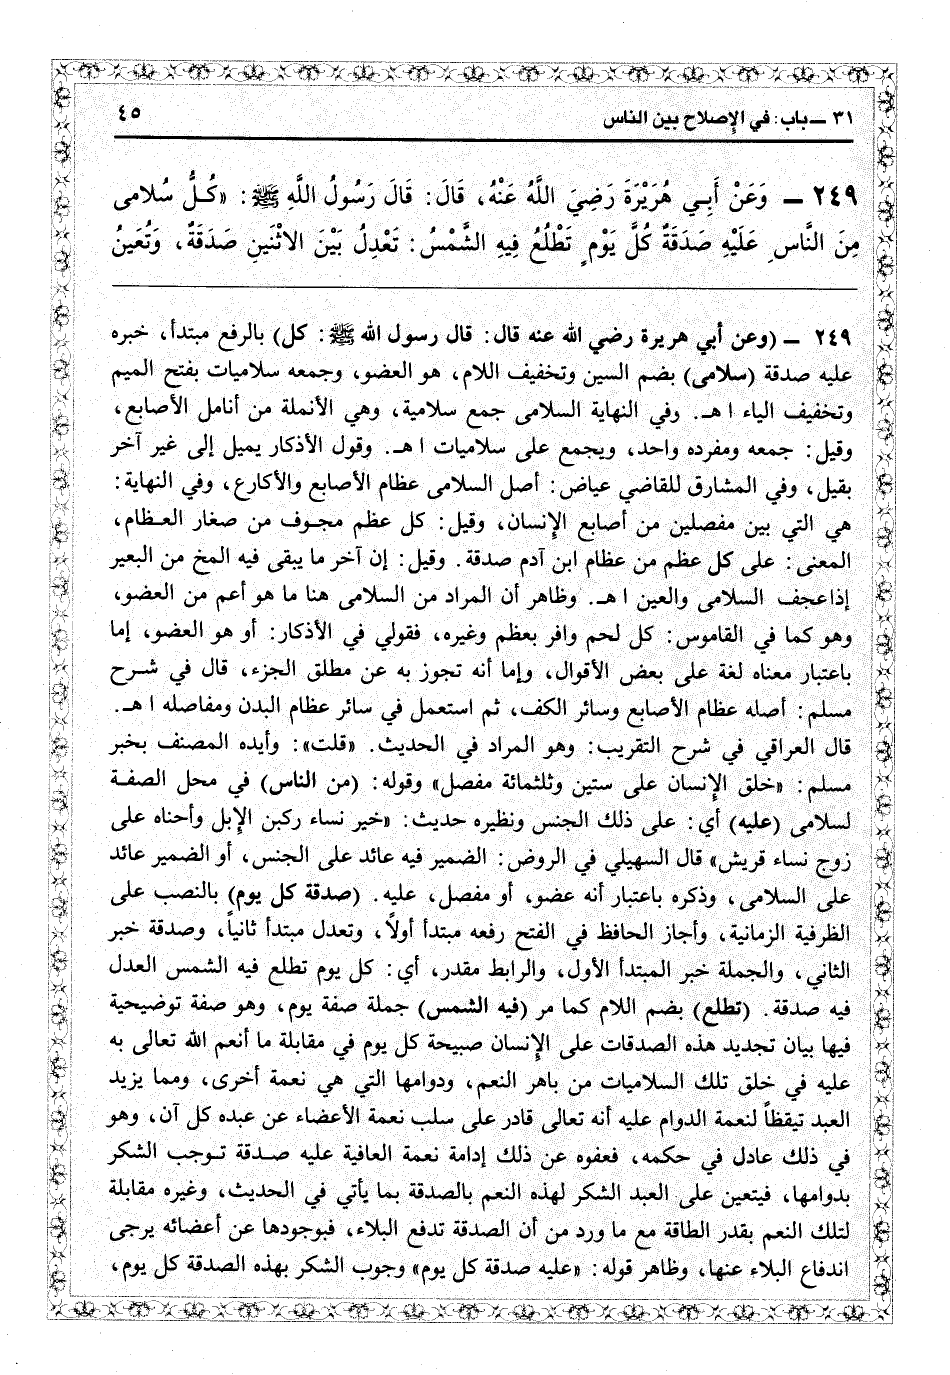 ٣١ ــ باب: في الإصلاح بين الناس
٤٥
٢٤٩ ــ وَعَنْ أَبِي هُرَيْرَةَ رَضِيَ اللَّهُ عَنْهُ، قَالَ: قَالَ رَسُولُ اللَّهِ ﷺ: «كُلُّ سُلامى
مِنَ النَّاسِ عَلَيْهِ صَدَقَةٌ كُلَّ يَوْمٍ تَطْلُعُ فِيهِ الشَّمْسُ: تَعْدِلُ بَيْنَ الاثْنَينِ صَدَقَةٌ، وَتُعَينُ
٢٤٩ ــ (وعن أبي هريرة رضي الله عنه قال: قال رسول الله ﷺ: كل) بالرفع مبتدأ، خبره
عليه صدقة (سلامى) بضم السين وتخفيف اللام، هو العضو، وجمعه سلاميات بفتح الميم
وتخفيف الياء ا هـ. وفي النهاية السلامى جمع سلامية، وهي الأنملة من أنامل الأصابع،
وقيل: جمعه ومفرده واحد، ويجمع على سلاميات ا هـ. وقول الأذكار يميل إلى غير آخر
بقيل، وفي المشارق للقاضي عياض: أصل السلامى عظام الأصابع والأكارع، وفي النهاية:
هي التي بين مفصلين من أصابع الإنسان، وقيل: كل عظم مجوف من صغار العظام،
المعنى: على كل عظم من عظام ابن آدم صدقة. وقيل: إن آخر ما يبقى فيه المخ من البعير
إذاعجف السلامى والعين ا هـ. وظاهر أن المراد من السلامى هنا ما هو أعم من العضو،
وهو كما في القاموس: كل لحم وافر بعظم وغيره، فقولي في الأذكار: أو هو العضو، إما
باعتبار معناه لغة على بعض الأقوال، وإما أنه تجوز به عن مطلق الجزء، قال في شرح
مسلم: أصله عظام الأصابع وسائر الكف، ثم استعمل في سائر عظام البدن ومفاصله ا هـ.
قال العراقي في شرح التقريب: وهو المراد في الحديث. «قلت»: وأيده المصنف بخبر
مسلم: «خلق الإنسان على ستين وثلثمائة مفصل» وقوله: (من الناس) في محل الصفة
لسلامى (عليه) أي: على ذلك الجنس ونظيره حديث: «خير نساء ركبن الإبل وأحناه على
زوج نساء قريش» قال السهيلي في الروض: الضمير فيه عائد على الجنس، أو الضمير عائد
على السلامى، وذكره باعتبار أنه عضو، أو مفصل، عليه. (صدقة كل يوم) بالنصب على
الظرفية الزمانية، وأجاز الحافظ في الفتح رفعه مبتدأ أولاً، وتعدل مبتدأ ثانياً، وصدقة خبر
الثاني، والجملة خبر المبتدأ الأول، والرابط مقدر، أي: كل يوم تطلع فيه الشمس العدل
فيه صدقة. (تطلع) بضم اللام كما مر (فيه الشمس) جملة صفة يوم، وهو صفة توضيحية
فيها بيان تجديد هذه الصدقات على الإنسان صبيحة كل يوم في مقابلة ما أنعم الله تعالى به
عليه في خلق تلك السلاميات من باهر النعم، ودوامها التي هي نعمة أخرى، ومما يزيد
العبد تيقظاً لنعمة الدوام عليه أنه تعالى قادر على سلب نعمة الأعضاء عن عبده كل آن، وهو
في ذلك عادل في حكمه، فعفوه عن ذلك إدامة نعمة العافية عليه صدقة توجب الشكر
بدوامها، فيتعين على العبد الشكر لهذه النعم بالصدقة بما يأتي في الحديث، وغيره مقابلة
لتلك النعم بقدر الطاقة مع ما ورد من أن الصدقة تدفع البلاء، فبوجودها عن أعضائه يرجى
اندفاع البلاء عنها، وظاهر قوله: «عليه صدقة كل يوم» وجوب الشكر بهذه الصدقة كل يوم،